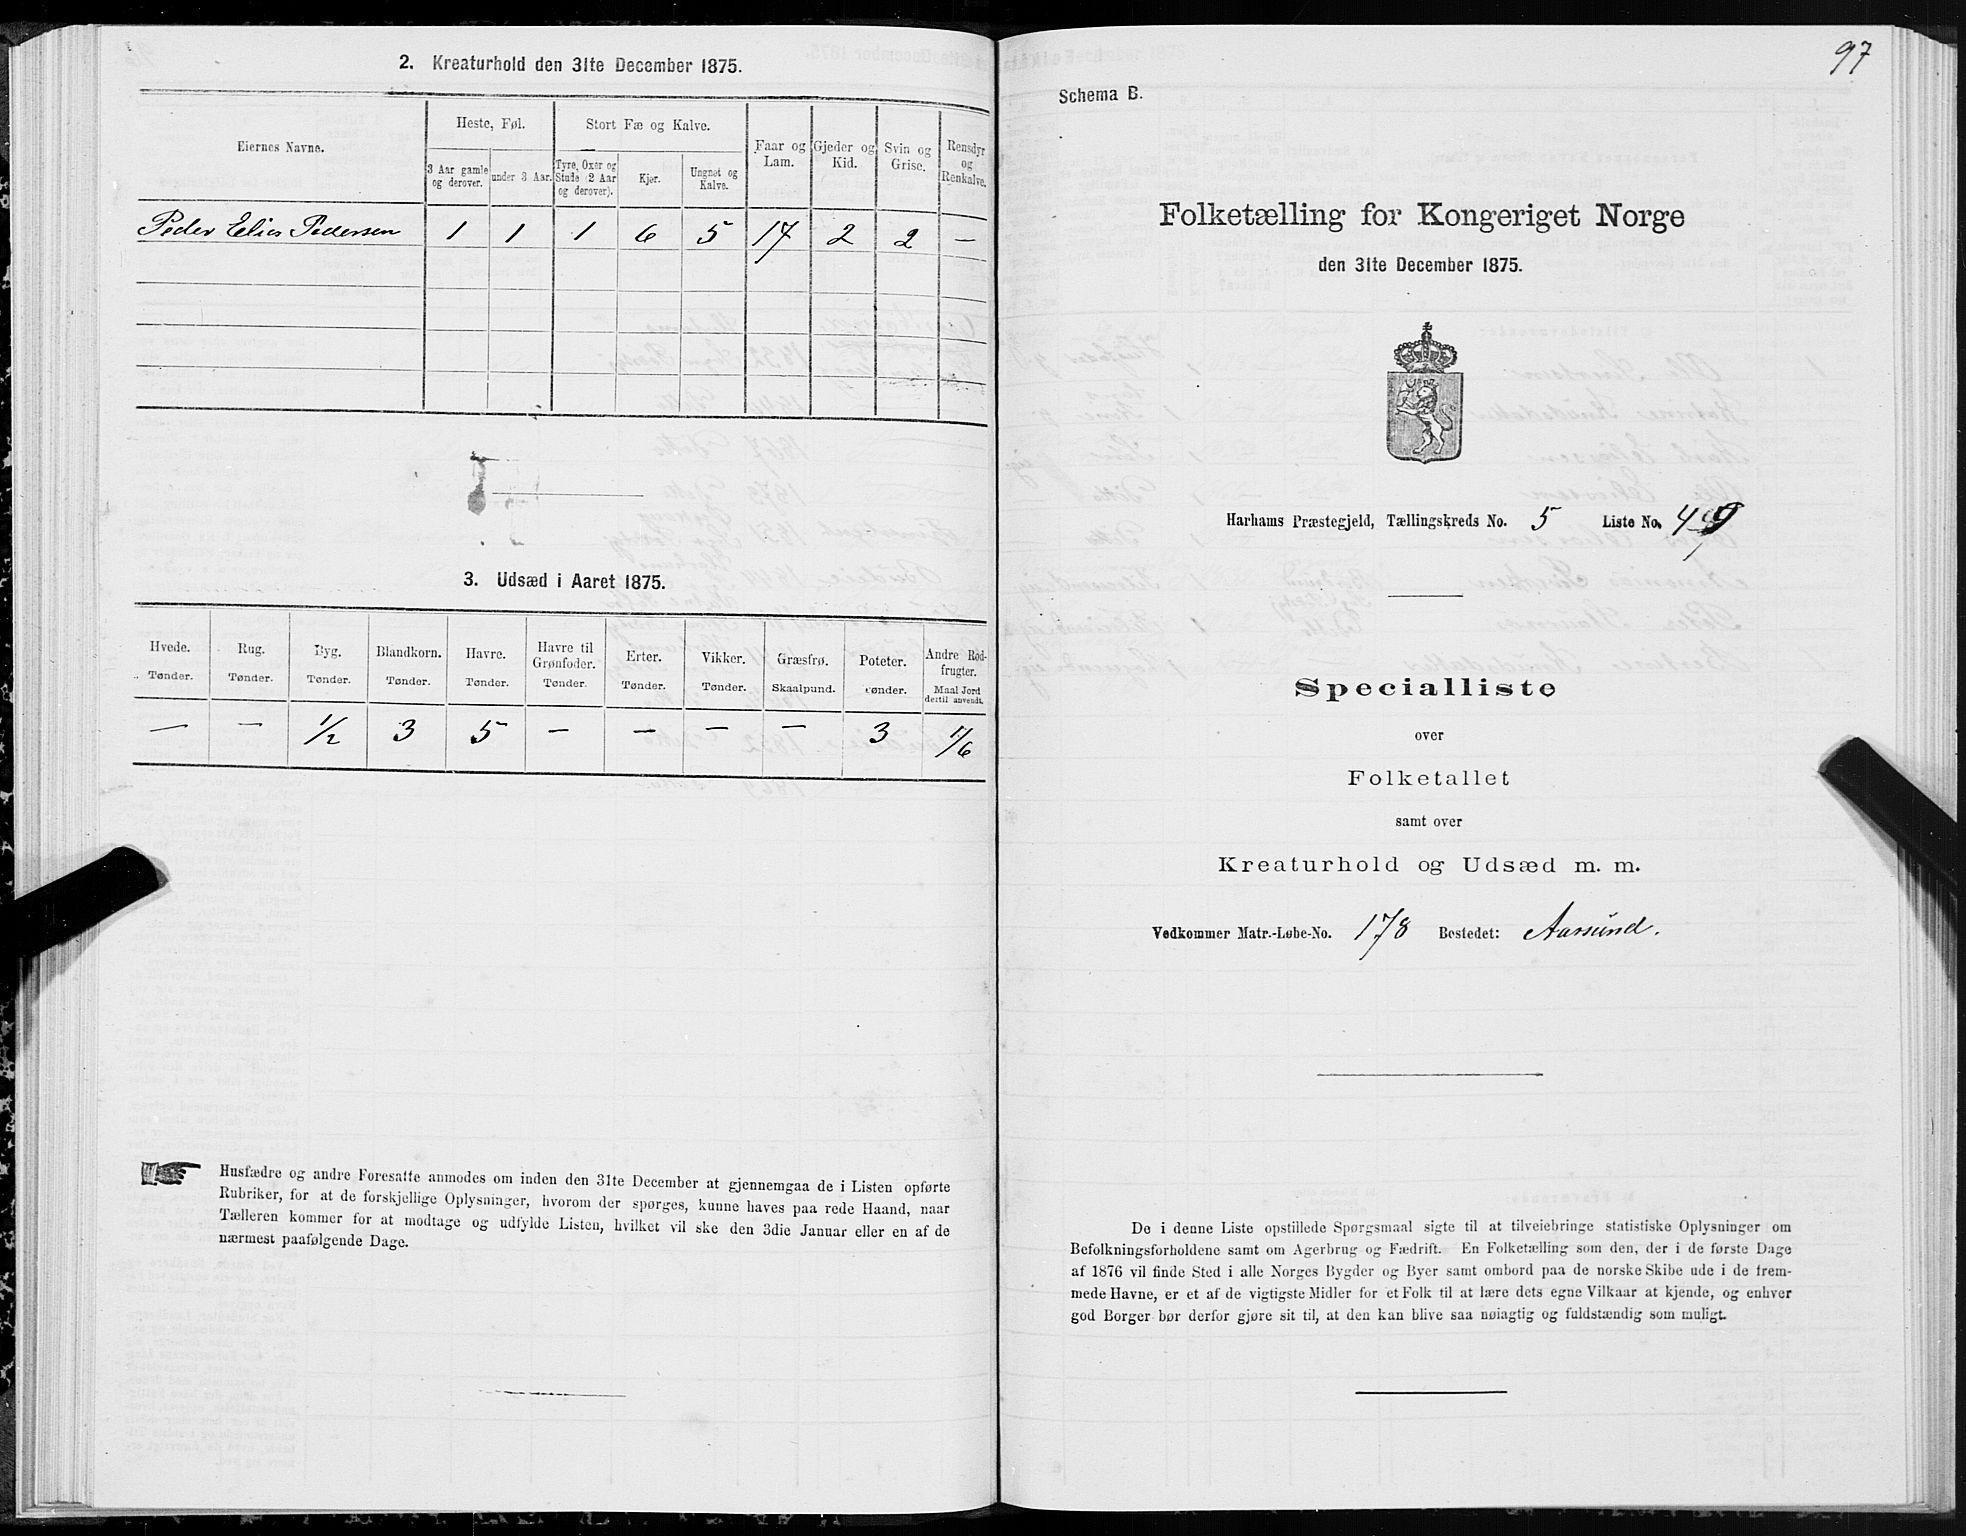 2. Kreaturhold den 31te December 1875.
Eiernes Navne.
Heste, Føl.
Stort Fæ og Kalve.
Faar og Lam.
Gjeder og Kid.
Svin og Grise.
Rensdyr og Renkalve.
3 Aar gamle og derover.
under 3 Aar.
Tyre, Oxer og Stude (2 Aar og derover).
Kjør.
Ungnet og Kalve.
Peder Elias Pedersen 1 1 1 6 5 17 2 2 —
3. Udsæd i Aaret 1875.
Hvede. Rug. Byg. Blandkorn. Havre. Havre til Grønfoder. Erter. Vikker. Græsfrø. Poteter. Andre Rodfrugter.
Tønder. Tønder. Tønder. Tønder. Tønder. Tønder. Tønder. Tønder. Skaalpund. Tønder. Maal Jord dertil anvendt.
— — 1/2 3 5 — — — — 3 1/6
Husfædre og andre Foresatte anmodes om inden den 31te December at gjennemgaa de i Listen opførte
Rubriker, for at de forskjellige Oplysninger, hvorom der spørges, kunne haves paa rede Haand, naar
Tælleren kommer for at modtage og udfylde Listen, hvilket vil ske den 3die Januar eller en af de
nærmest paafølgende Dage.
97
Schema B.
Folketælling for Kongeriget Norge
den 31te December 1875.
Harhams Præstegjeld, Tællingskreds No. 5 Liste No. 49
Specialliste
over
Folketallet
samt over
Kreaturhold og Udsæd m. m.
Vedkommer Matr.-Løbe-No. 178 Bostedet: Aarsund.
De i denne Liste opstillede Spørgsmaal sigte til at tilveiebringe statistiske Oplysninger om
Befolkningsforholdene samt om Agerbrug og Fædrift. En Folketælling som den, der i de første Dage
af 1876 vil finde Sted i alle Norges Bygder og Byer samt ombord paa de norske Skibe ude i de frem-
mede Havne, er et af de vigtigste Midler for et Folk til at lære dets egne Vilkaar at kjende, og enhver
god Borger bør derfor gjøre sit til, at den kan blive saa nøiagtig og fuldstændig som muligt.